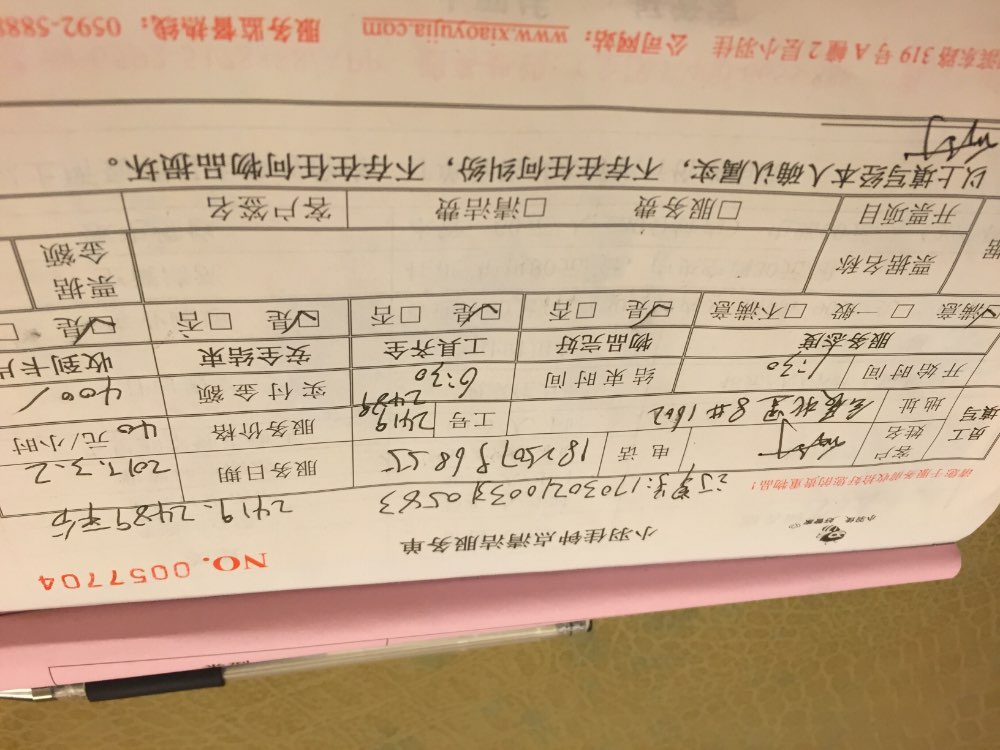 小羽佳 好管家
小羽佳钟点清洁服务单
NO. 0057704
请您于服务前收拾好您的贵重物品!
2419、2489
员工填写
客户姓名
电话
服务日期
2017.3.2
地址
8# 1602
工号
2419
2489
服务价格
40 元/小时
开始时间
1:30
结束时间
6:30
实付金额
400/
服务态度
物品完好
工具齐全
安全结束
收到卡片
☑满意 □一般 □不满意
☑是 □否
☑是 □否
☑是 □否
☑是 □
据
票据名称
票据金额
开票项目
□服务费 □清洁费
客户签名
以上填写经本人确认属实,不存在任何纠纷,不存在任何物品损坏。
滨东路 319 号 A 幢 2 层小羽佳 公司网站:www.xiaoyujia.com 服务监督热线:0592-5888